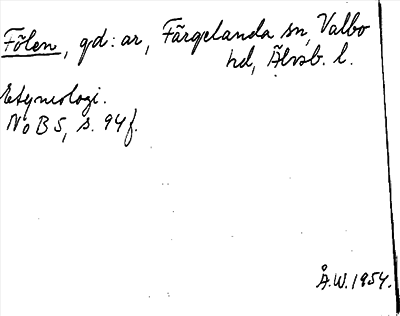 Fölen, gd: ar, Färgelanda sn, Valbo
hd, Älvsb. l.
Etymologi.
NoB 5, s. 94f.
Å.W. 1954.